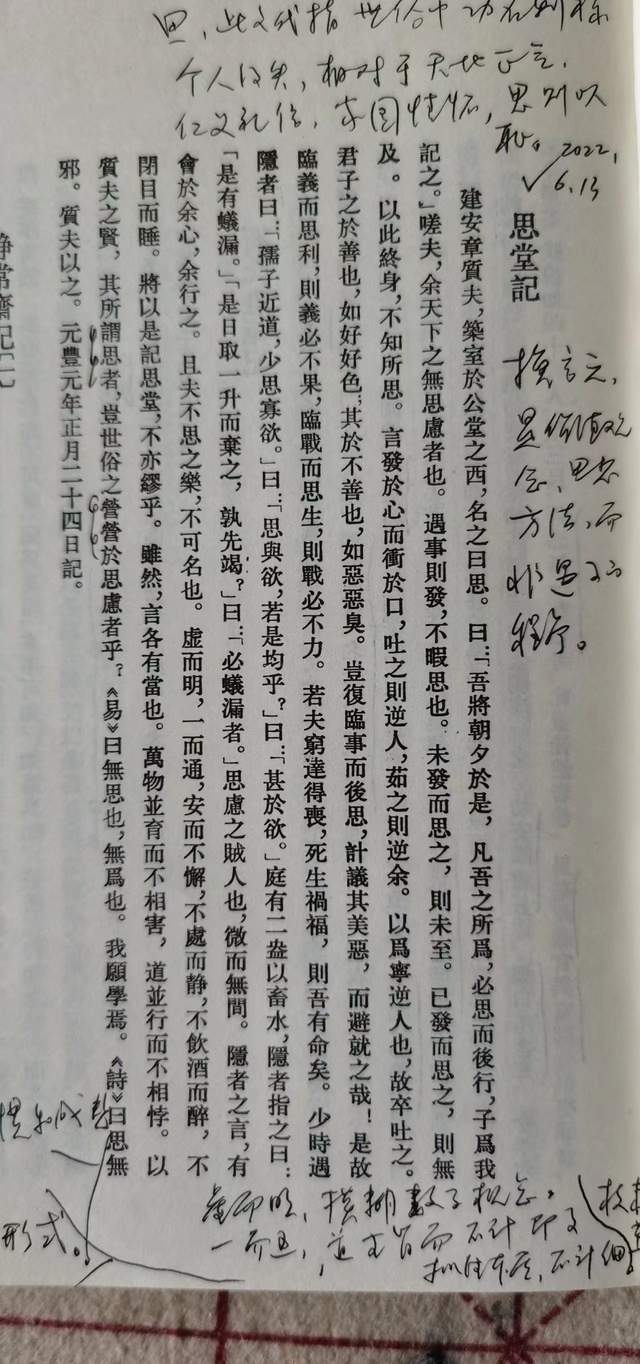 個人得失，相对于天地正言，
仁义礼信，家国情怀，思则以
耻。2022，
6.13
思堂記
换言之，
是价值观
念，思想
方法，而
非遇事
程序。
建安章質夫，築室於公堂之西，名之曰思。曰：「吾將朝夕於是，凡吾之所爲，必思而後行，子爲我
記之。」嗟夫，余天下之無思慮者也。遇事則發，不暇思也。未發而思之，則未至。已發而思之，則無
及。以此終身，不知所思。言發於心而衝於口，吐之則逆人，茹之則逆余。以爲寧逆人也，故卒吐之。
君子之於善也，如好好色；其於不善也，如惡惡臭。豈復臨事而後思，計議其美惡，而避就之哉！是故
臨義而思利，則義必不果，臨戰而思生，則戰必不力。若夫窮達得喪，死生禍福，則吾有命矣。少時遇
隱者曰：「孺子近道，少思寡欲。」曰：「思與欲，若是均乎？」曰：「甚於欲。」庭有二盎以畜水，隱者指之曰：
「是有蟻漏。」「是日取一升而棄之，孰先竭？」曰：「必蟻漏者。」思慮之賊人也，微而無間。隱者之言，有
會於余心，余行之。且夫不思之樂，不可名也。虛而明，一而通，安而不懈，不處而静，不飲酒而醉，不
閉目而睡。將以是記思堂，不亦繆乎。雖然，言各有當也。萬物並育而不相害，道並行而不相悖。以
質夫之賢，其所謂思者，豈世俗之營營於思慮者乎？《易》曰無思也，無爲也。我願學焉。《詩》曰思無
邪。質夫以之。元豐元年正月二十四日記。
虚而明，模糊数学概念。
形式。